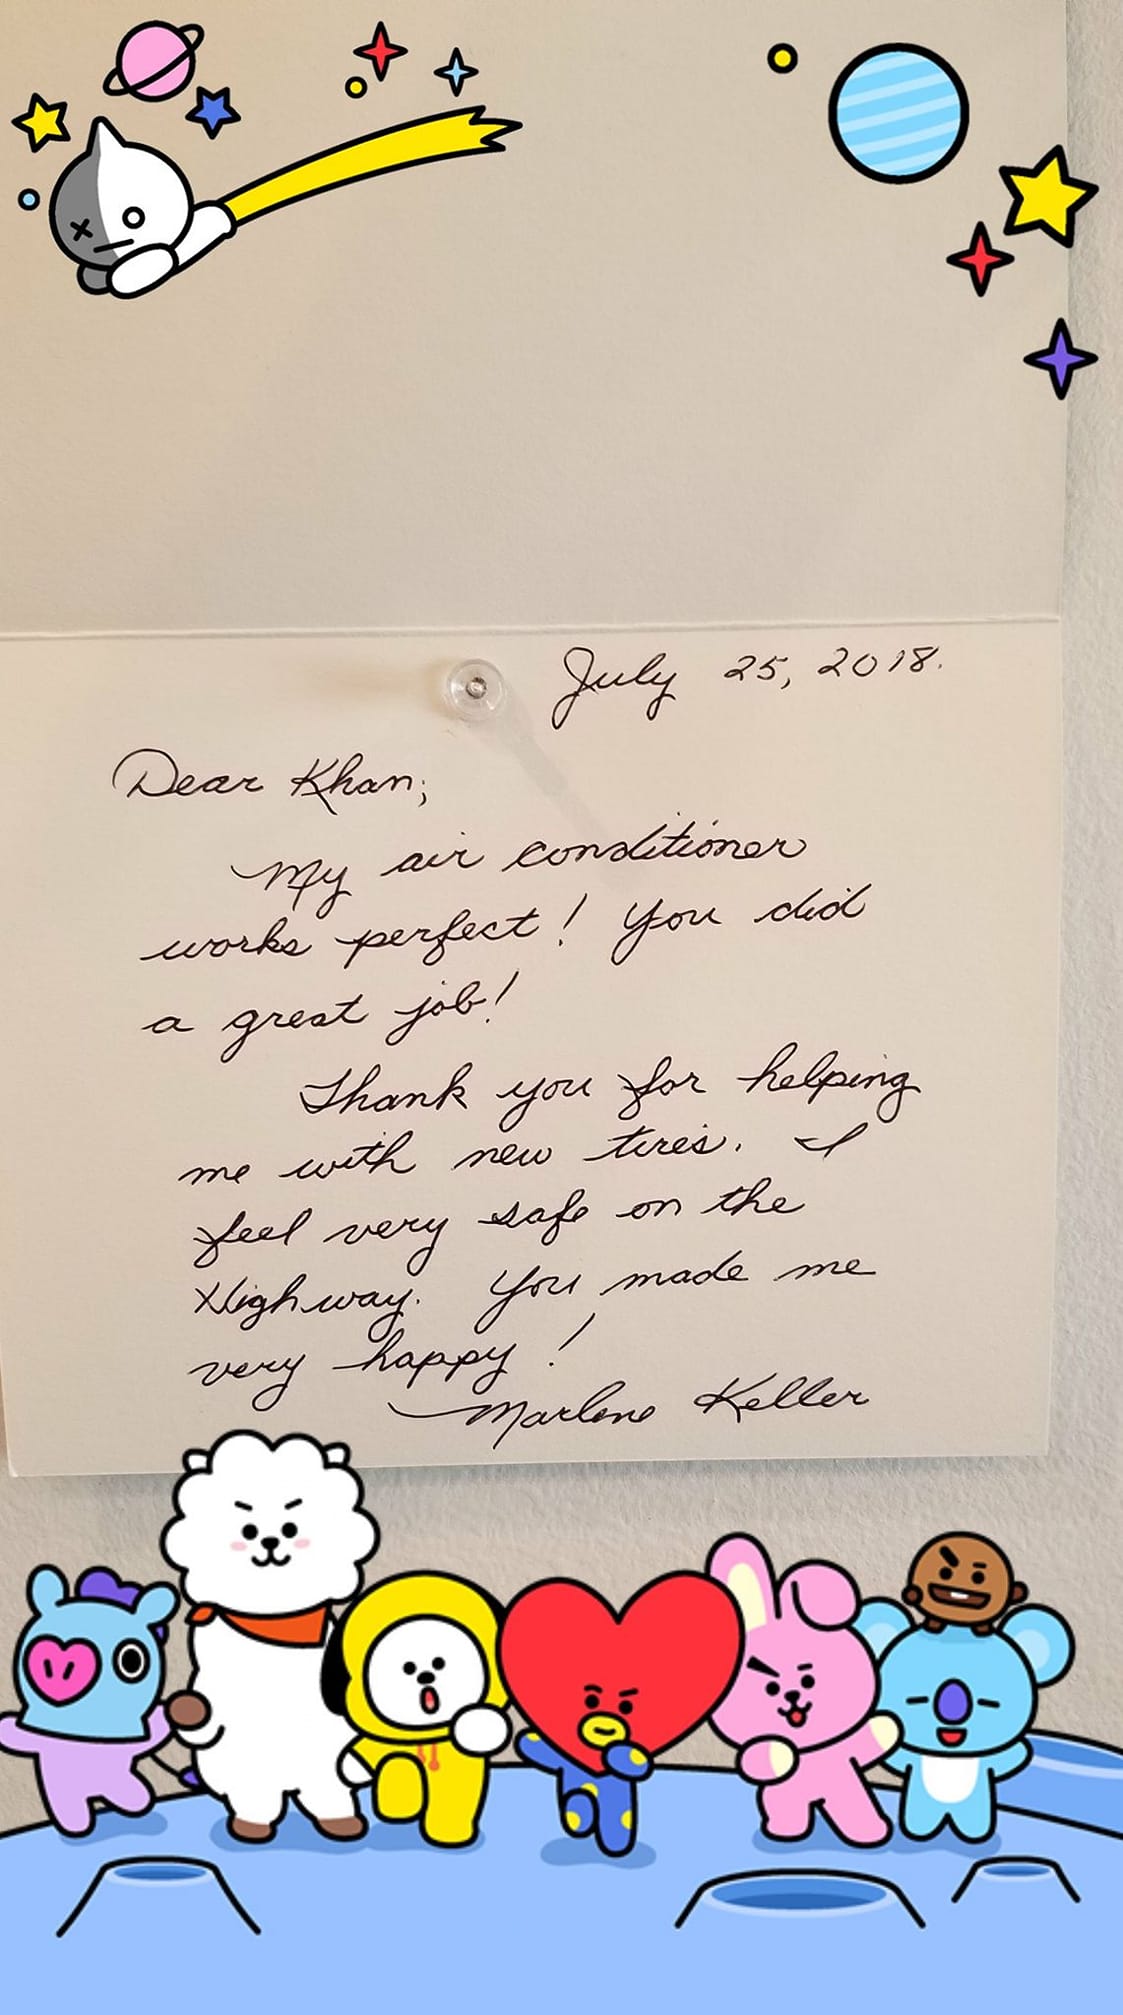 July 25, 2018.
Dear Khan;
My air conditioner
works perfect! You did
a great job!
Thank you for helping
me with new tires. I
feel very safe on the
Highway. You made me
very happy!
Marlene Keller